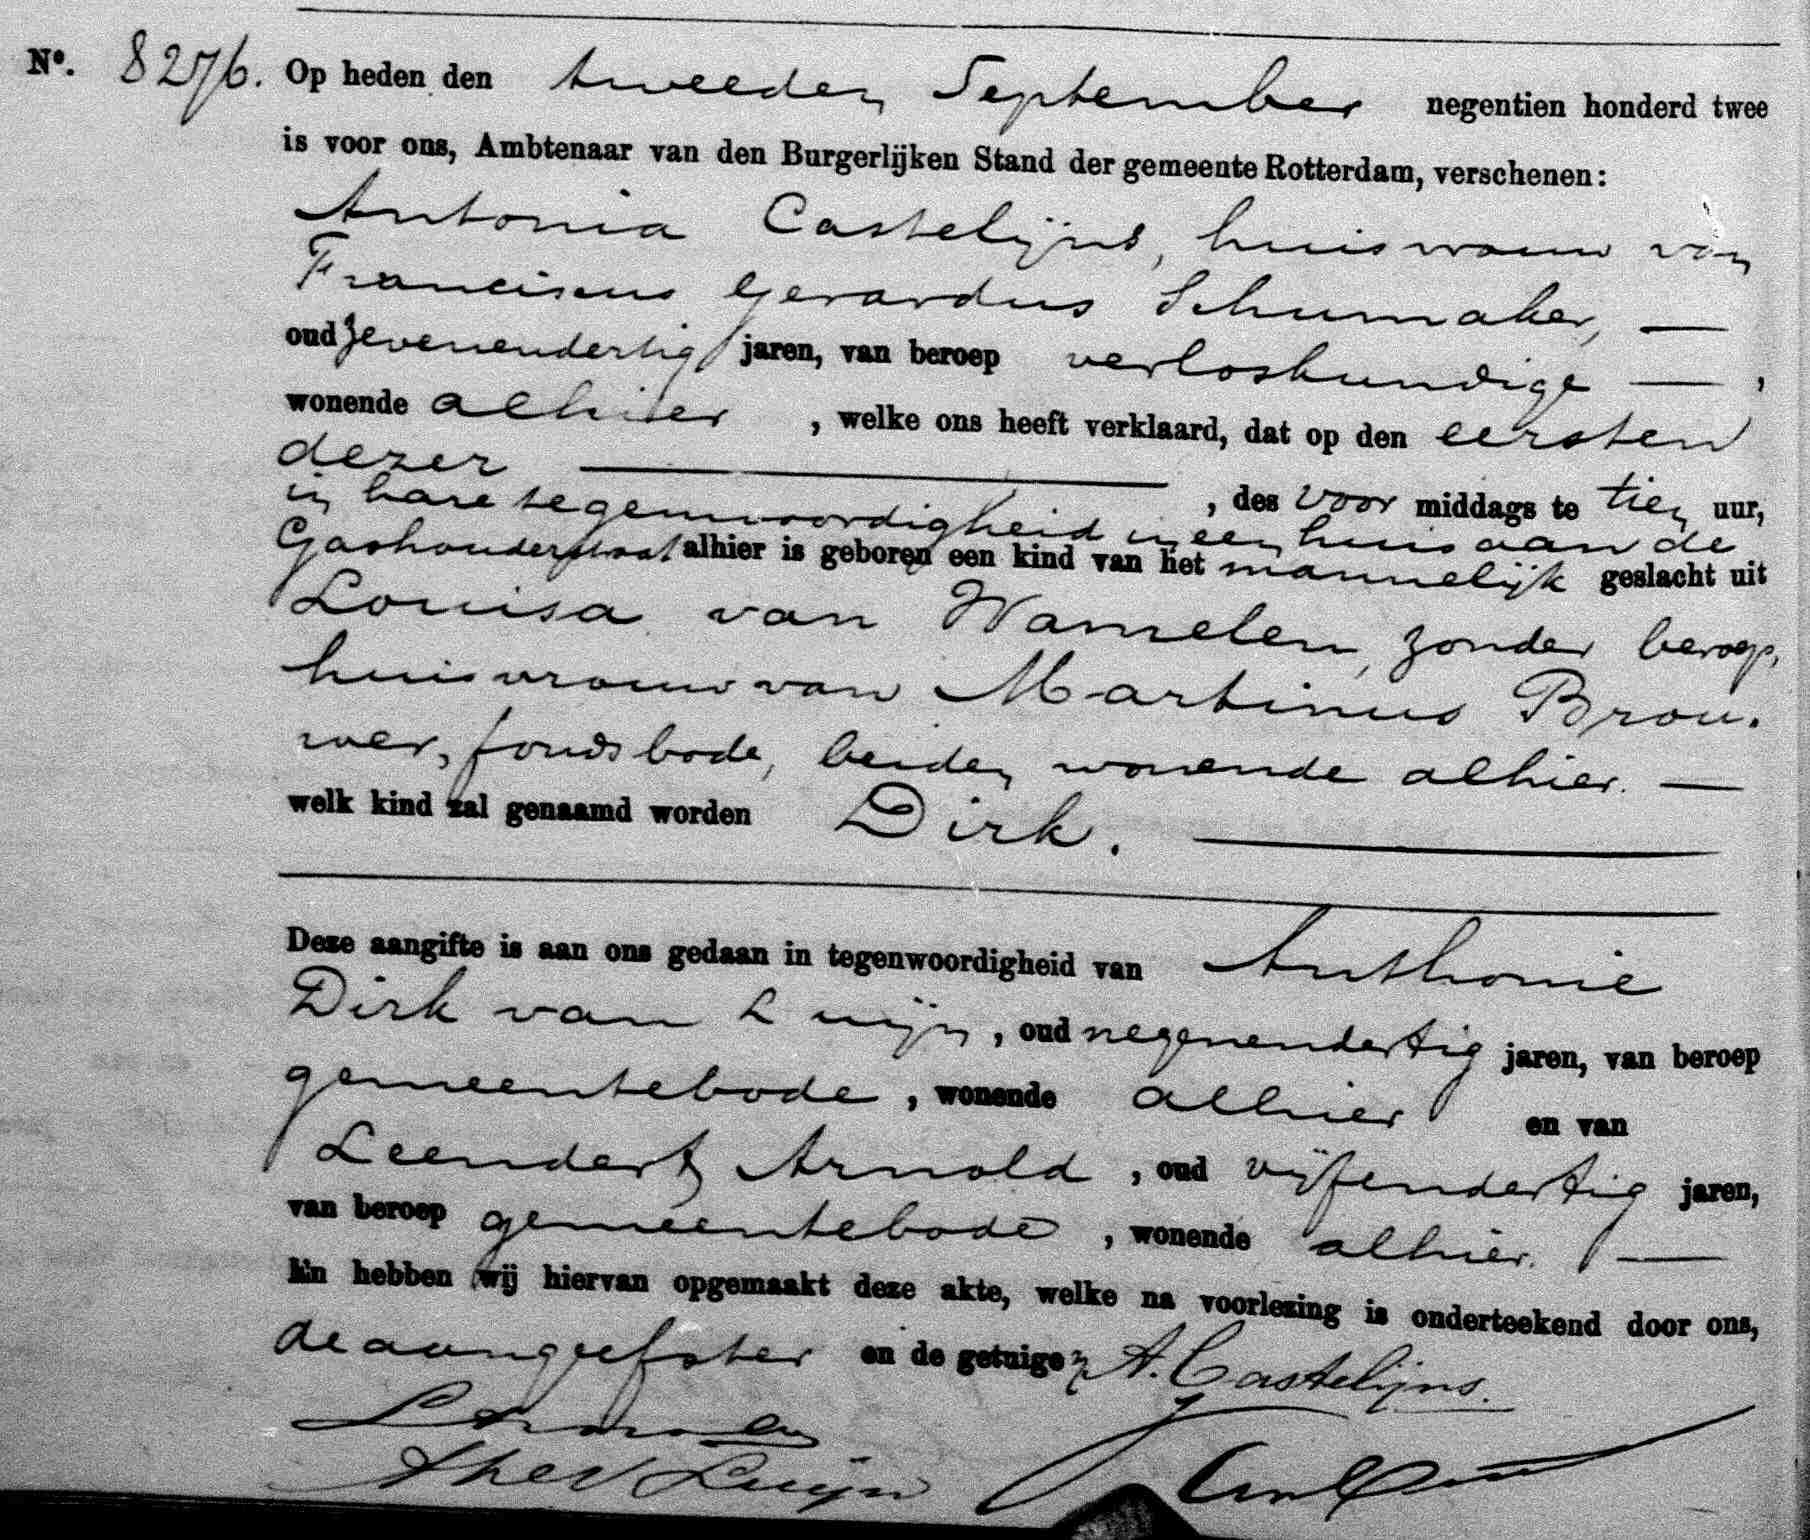 No. 8276. Op heden den tweeden September negentien honderd twee
is voor ons, Ambtenaar van den Burgerlijken Stand der gemeente Rotterdam, verschenen:
Antonia Castelijns, huisvrouw van
Franciscus Gerardus Schumaker, —
oud zevenendertig jaren, van beroep verloskundige — ,
wonende alhier , welke ons heeft verklaard, dat op den eersten
dezer — , des voor middags te tien uur,
in hare tegenwoordigheid in een huis aan de
Gashouderstraat alhier is geboren een kind van het mannelijk geslacht uit
Louisa van Wamelen, zonder beroep,
huisvrouw van Martinus Brou-
wer, fondsbode, beiden wonende alhier. —
welk kind zal genaamd worden Dirk. —
Deze aangifte is aan ons gedaan in tegenwoordigheid van Anthonie
Dirk van Luijn, oud negenendertig jaren, van beroep
gemeentebode, wonende alhier en van
Leendert Arnold, oud vijfendertig jaren,
van beroep gemeentebode, wonende alhier. —
En hebben wij hiervan opgemaakt deze akte, welke na voorlezing is onderteekend door ons,
de aangeefster en de getuigen A. Castelijns.
Luijn